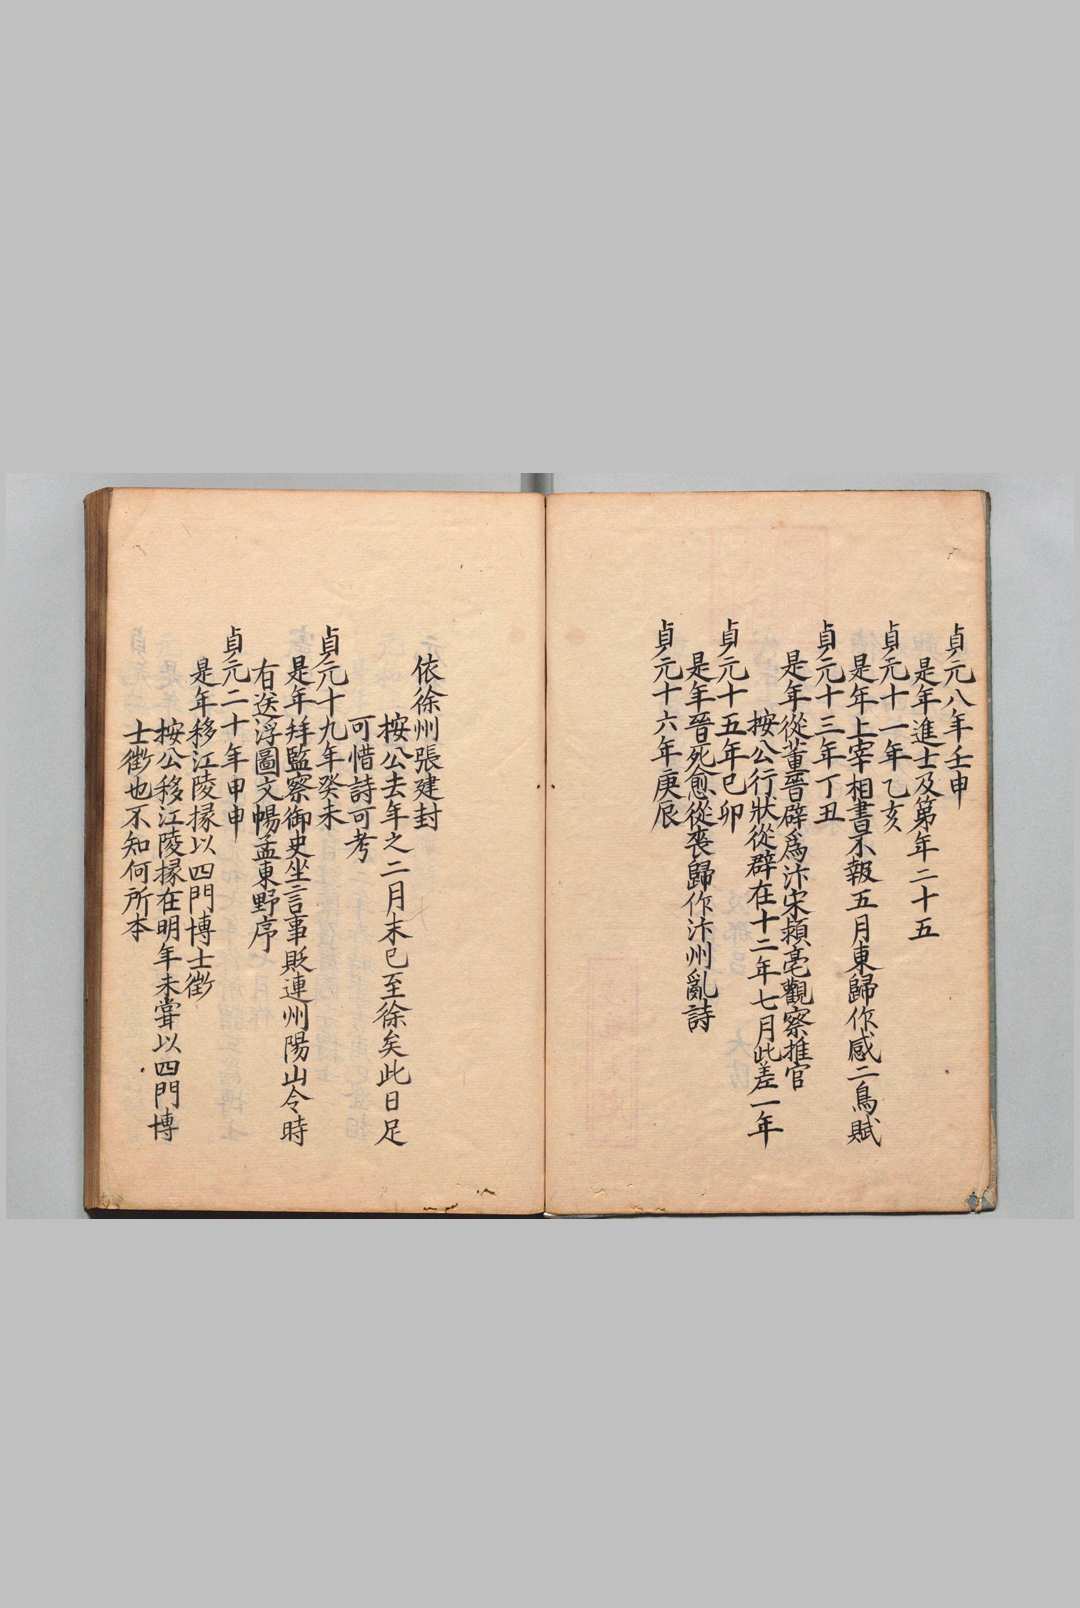 貞元八年壬申
是年進士及第年二十五
貞元十一年乙亥
是年上宰相書不報五月東歸作感二鳥賦
貞元十三年丁丑
是年從董晉辟爲汴宋潁亳觀察推官
按公行狀從辟在十二年七月此差一年
貞元十五年己卯
是年晉死愈從喪歸作汴州亂詩
貞元十六年庚辰
依徐州張建封
按公去年之二月末已至徐矣此日足
可惜詩可考
貞元十九年癸未
是年拜監察御史坐言事貶連州陽山令時
有送浮圖文暢孟東野序
貞元二十年甲申
是年移江陵掾以四門博士徵
按公移江陵掾在明年未嘗以四門博
士徵也不知何所本